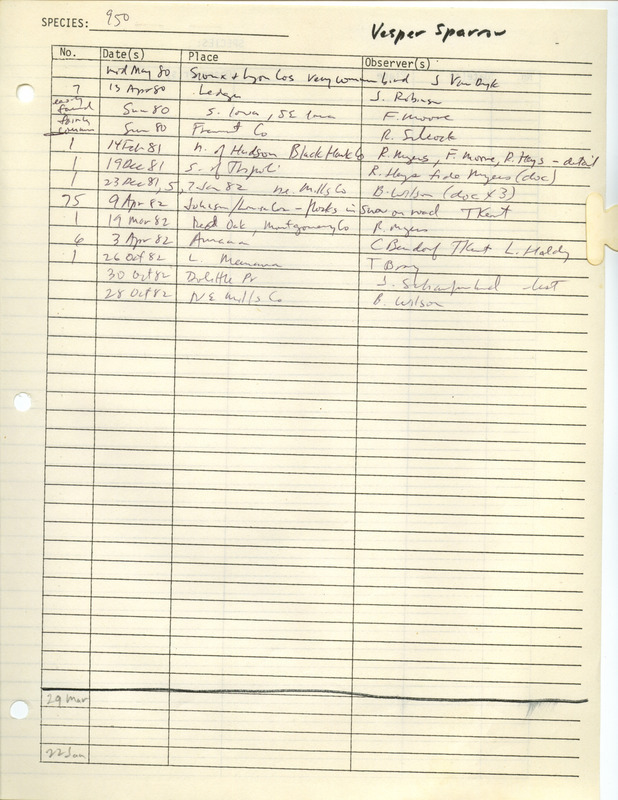 SPECIES: 950
Vesper Sparrow
No. Date(s) Place Observer(s)
mid May 80 Sioux & Lyon Cos very common bird J Van Dyk
7 13 Apr 80 Ledges J. Robinson
easily found Sum 80 S. Iowa, SE Iowa F. Moore
fairly common Sum 80 Fremont Co R. Silcock
1 14 Feb 81 N. of Hudson Black Hawk Co R. Myers, F. Moore, R. Hays - detail
1 19 Dec 81 S. of R. Hays fide Myers (doc)
1 23 Dec 81, 5, 7 Jan 82 NE Mills Co B. Wilson (doc x 3)
75 9 Apr 82 Johnson/ Co - flocks in snow on road T Kent
1 19 Mar 82 Red Oak, Montgomery Co R. Myers
6 3 Apr 82 Amana C Bendorf T Kent L. Haldy
1 26 Oct 82 L. Manawa T Bray
30 Oct 82 Dolittle Pr J.
28 Oct 82 NE Mills Co B. Wilson
29 Mar
22 Jan